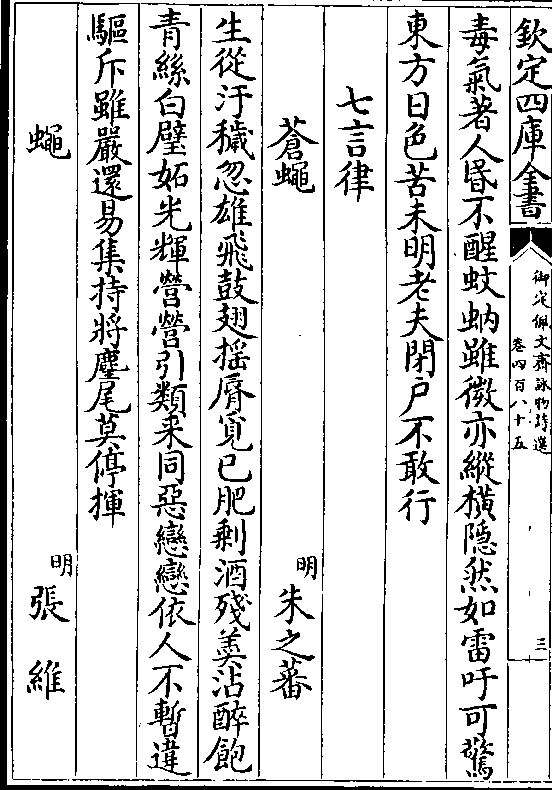 欽定四庫全書
御定佩文齋詠物詩選
卷四百八十五
三
毒氣著人昏不醒蚊蚋雖微亦縱橫隱然如雷吁可驚
東方日色苦未明老夫閉戶不敢行
七言律
蒼蠅
明
朱之蕃
生從汙穢忽雄飛鼓翅揺脣覓已肥剩酒殘羮沾醉飽
青絲白璧妬光輝營營引類来同惡戀戀依人不暫違
驅斥雖嚴還易集持將麈尾莫停揮
蠅
明
張維